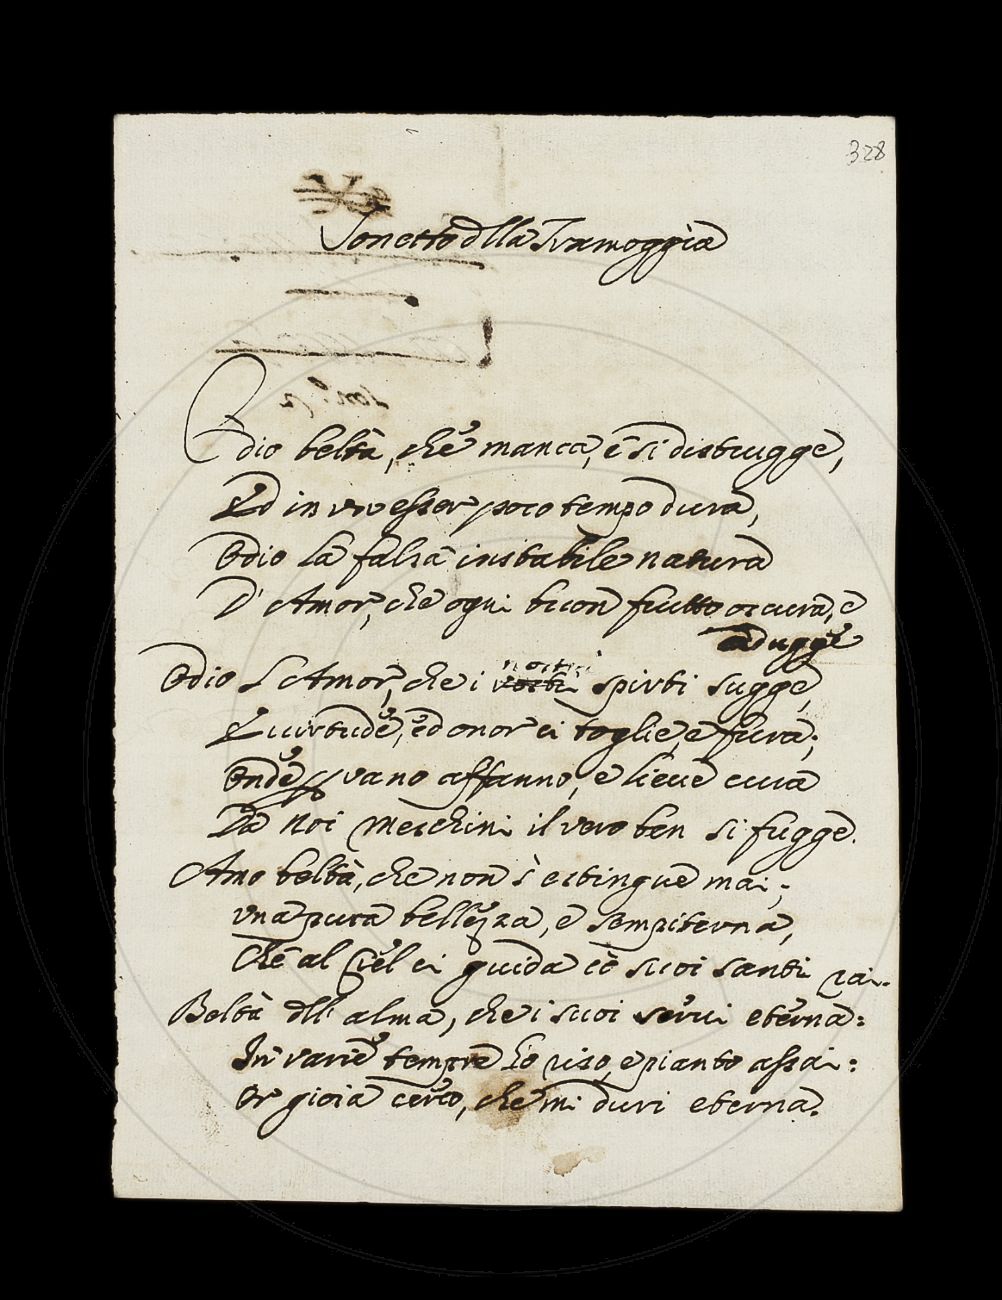 328
Sonetto dlla Tramoggia
Odio beltà, che manca, e si distrugge,
Ed in un esser poco tempo dura,
Odio la falsa instabile natura
D' Amor, che ogni buon frutto oscura, e
adugge
Odio l'Amor, che i nostri spirti sugge,
E virtude, ed onor ci toglie, e fura;
Onde vano affanno, e lieve cura
Da noi meschini il vero ben si fugge.
Amo beltà, che non s'estingue mai;
una pura bellezza, e sempiterna,
Che al Ciel ci guida cò suoi santi rai.
Beltà dll' alma, che i suoi servi eterna:
In varie tempre hò riso, e pianto assai:
Or gioia cerco, che mi duri eterna.